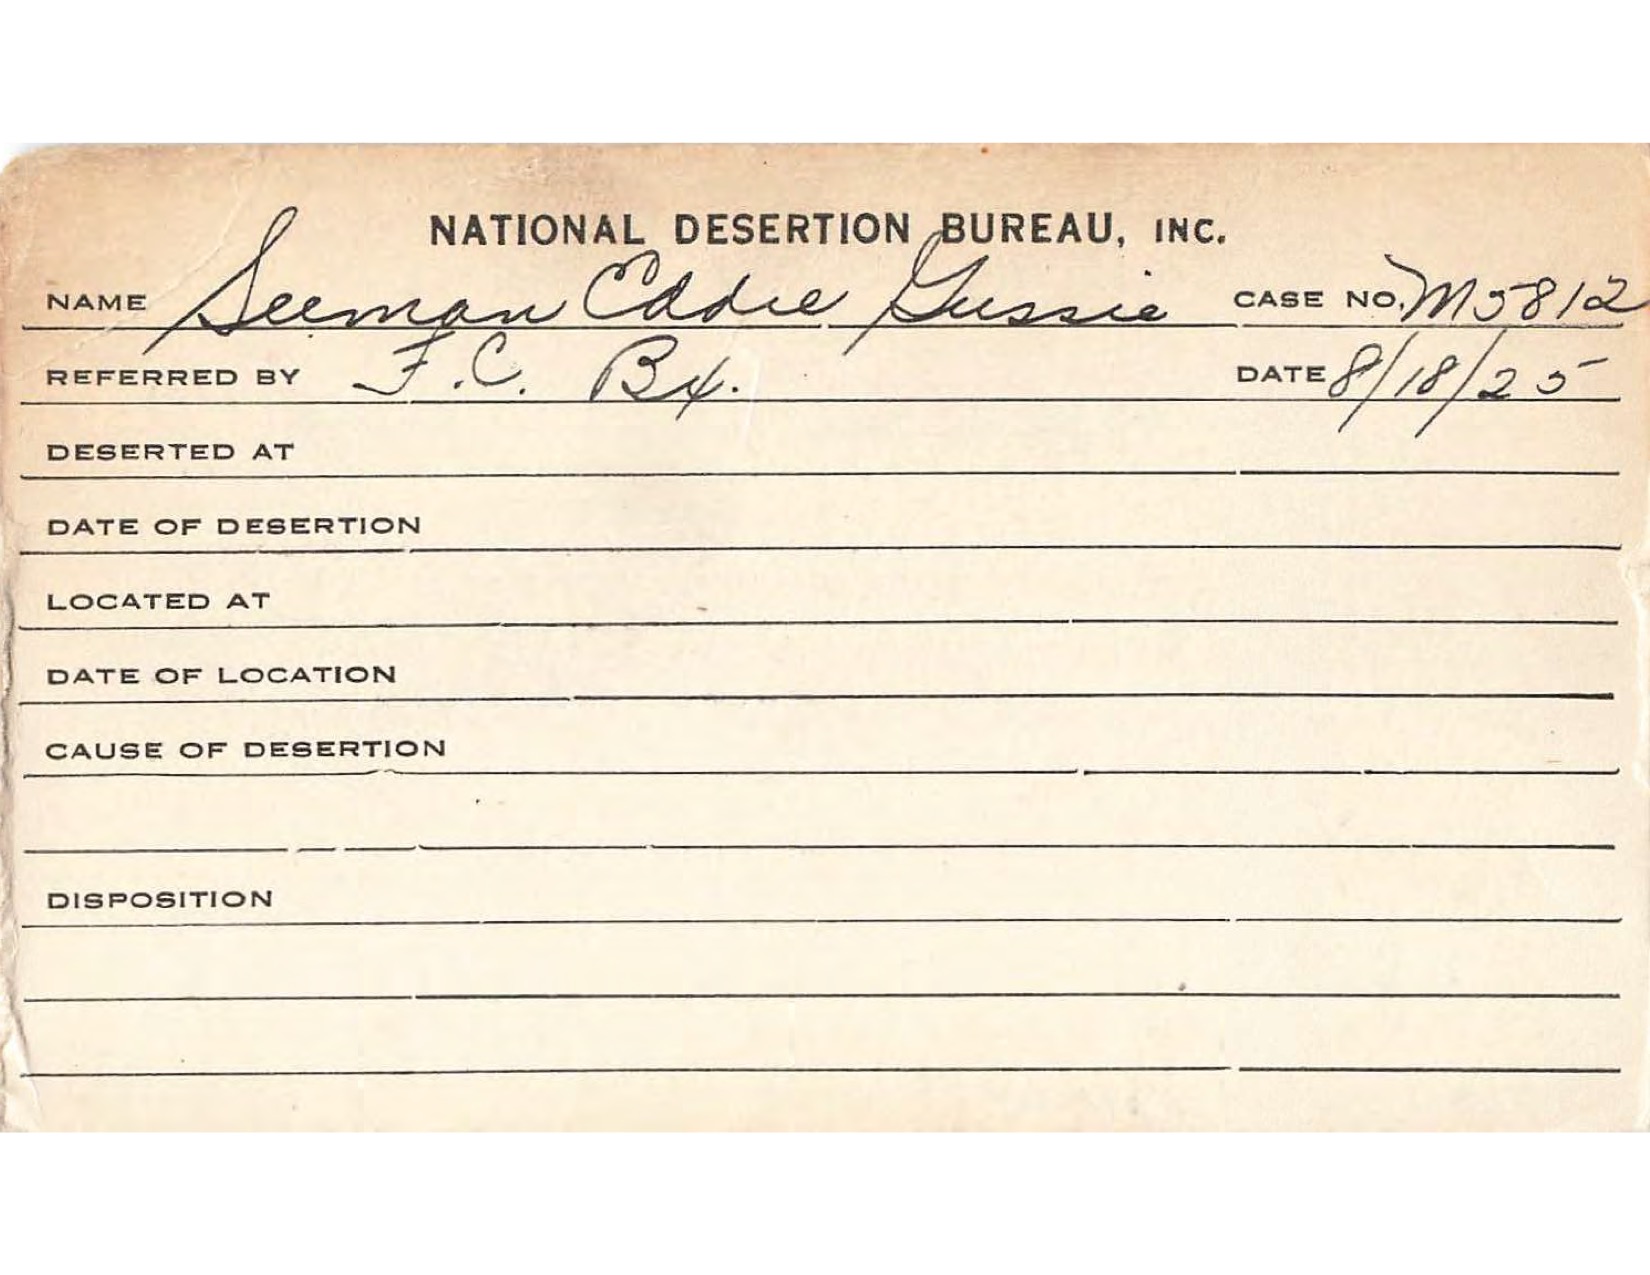 NATIONAL DESERTION BUREAU, INC.
NAME Seeman Eddie Gussie CASE NO. M5812
REFERRED BY F.C. Bx. DATE 8/18/25
DESERTED AT
DATE OF DESERTION
LOCATED AT
DATE OF LOCATION
CAUSE OF DESERTION
DISPOSITION